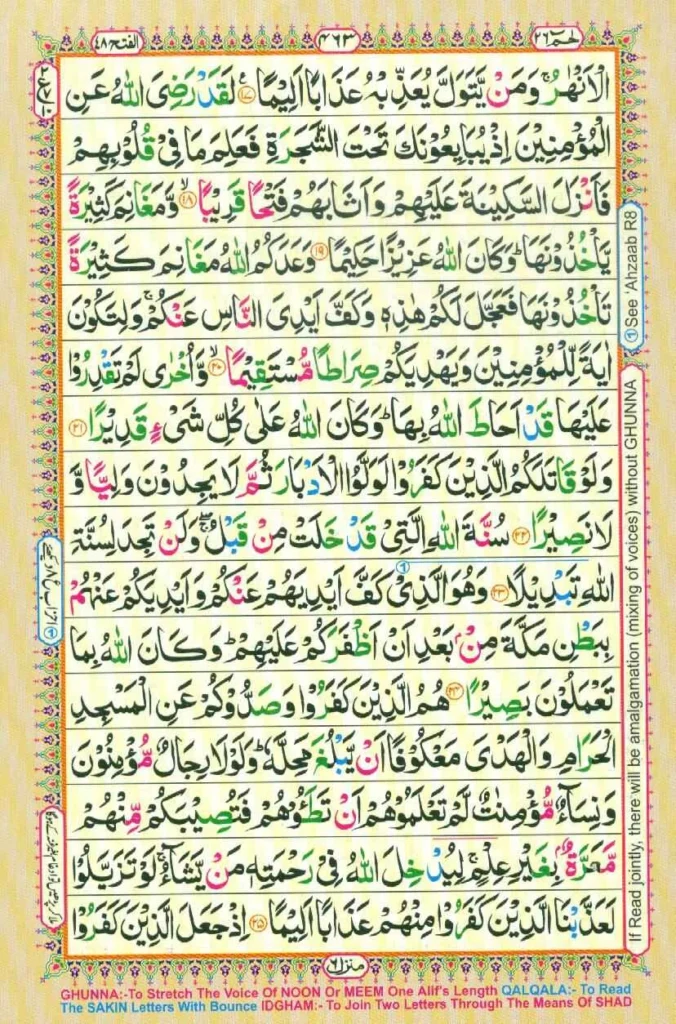 حٰمٓ ٢٦
٤٦٣
الفتح ٤٨
الْاَنْهٰرُ ۚ وَمَنْ يَّتَوَلَّ يُعَذِّبْهُ عَذَابًا اَلِيْمًا ﴿١٧﴾ لَقَدْ رَضِيَ اللّٰهُ عَنِ
الْمُؤْمِنِيْنَ اِذْ يُبَايِعُوْنَكَ تَحْتَ الشَّجَرَةِ فَعَلِمَ مَا فِيْ قُلُوْبِهِمْ
فَاَنْزَلَ السَّكِيْنَةَ عَلَيْهِمْ وَاَثَابَهُمْ فَتْحًا قَرِيْبًا ﴿١٨﴾ وَّمَغَانِمَ كَثِيْرَةً
يَّاْخُذُوْنَهَا ؕ وَكَانَ اللّٰهُ عَزِيْزًا حَكِيْمًا ﴿١٩﴾ وَعَدَكُمُ اللّٰهُ مَغَانِمَ كَثِيْرَةً
تَاْخُذُوْنَهَا فَعَجَّلَ لَكُمْ هٰذِهٖ وَكَفَّ اَيْدِيَ النَّاسِ عَنْكُمْ ۚ وَلِتَكُوْنَ
اٰيَةً لِّلْمُؤْمِنِيْنَ وَيَهْدِيَكُمْ صِرَاطًا مُّسْتَقِيْمًا ﴿٢٠﴾ وَّاُخْرٰى لَمْ تَقْدِرُوْا
عَلَيْهَا قَدْ اَحَاطَ اللّٰهُ بِهَا ؕ وَكَانَ اللّٰهُ عَلٰى كُلِّ شَيْءٍ قَدِيْرًا ﴿٢١﴾
وَلَوْ قَاتَلَكُمُ الَّذِيْنَ كَفَرُوْا لَوَلَّوُا الْاَدْبَارَ ثُمَّ لَا يَجِدُوْنَ وَلِيًّا وَّ
لَا نَصِيْرًا ﴿٢٢﴾ سُنَّةَ اللّٰهِ الَّتِيْ قَدْ خَلَتْ مِنْ قَبْلُ ۖۚ وَلَنْ تَجِدَ لِسُنَّةِ
اللّٰهِ تَبْدِيْلًا ﴿٢٣﴾ وَهُوَ الَّذِيْ كَفَّ اَيْدِيَهُمْ عَنْكُمْ وَاَيْدِيَكُمْ عَنْهُمْ
بِبَطْنِ مَكَّةَ مِنْۢ بَعْدِ اَنْ اَظْفَرَكُمْ عَلَيْهِمْ ؕ وَكَانَ اللّٰهُ بِمَا
تَعْمَلُوْنَ بَصِيْرًا ﴿٢٤﴾ هُمُ الَّذِيْنَ كَفَرُوْا وَصَدُّوْكُمْ عَنِ الْمَسْجِدِ
الْحَرَامِ وَالْهَدْيَ مَعْكُوْفًا اَنْ يَّبْلُغَ مَحِلَّهٗ ؕ وَلَوْلَا رِجَالٌ مُّؤْمِنُوْنَ
وَنِسَآءٌ مُّؤْمِنٰتٌ لَّمْ تَعْلَمُوْهُمْ اَنْ تَطَـُٔوْهُمْ فَتُصِيْبَكُمْ مِّنْهُمْ
مَّعَرَّةٌۢ بِغَيْرِ عِلْمٍ ۚ لِيُدْخِلَ اللّٰهُ فِيْ رَحْمَتِهٖ مَنْ يَّشَآءُ ۚ لَوْ تَزَيَّلُوْا
لَعَذَّبْنَا الَّذِيْنَ كَفَرُوْا مِنْهُمْ عَذَابًا اَلِيْمًا ﴿٢٥﴾ اِذْ جَعَلَ الَّذِيْنَ كَفَرُوْا
① See 'Ahzaab R8
If Read jointly, there will be amalgamation (mixing of voices) without GHUNNA
منزل ٦
GHUNNA:-To Stretch The Voice Of NOON Or MEEM One Alif's Length QALQALA:- To Read
The SAKIN Letters With Bounce IDGHAM:- To Join Two Letters Through The Means Of SHAD